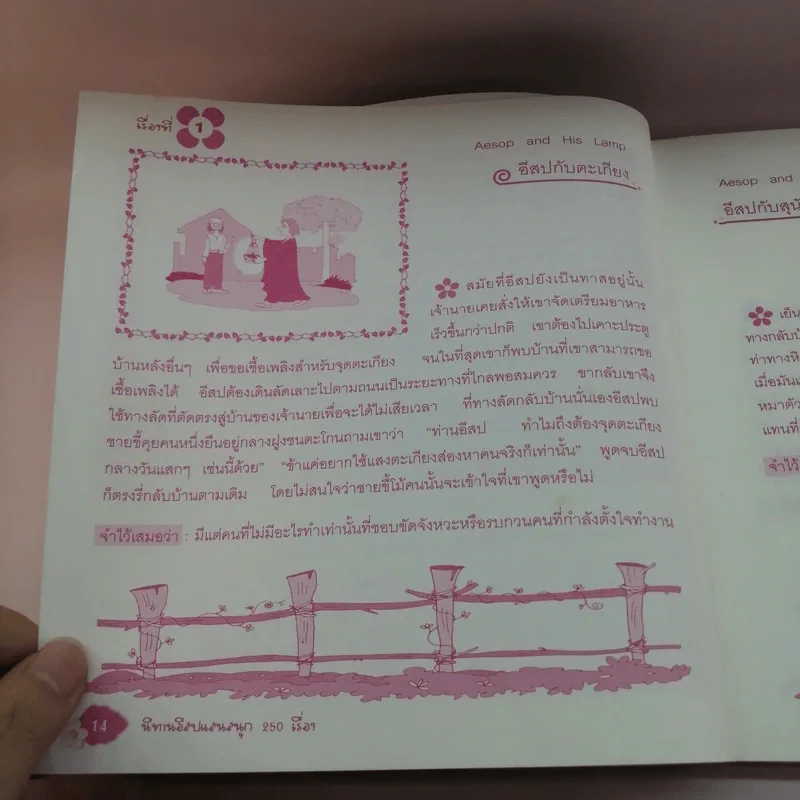 เรื่องที่ 1
Aesop and His Lamp
อีสปกับตะเกียง
สมัยที่อีสปยังเป็นทาสอยู่นั้น
เจ้านายเคยสั่งให้เขาจัดเตรียมอาหาร
เร็วขึ้นกว่าปกติ เขาต้องไปเคาะประตู
บ้านหลังอื่นๆ เพื่อขอเชื้อเพลิงสำหรับจุดตะเกียง จนในที่สุดเขาก็พบบ้านที่เขาสามารถขอ
เชื้อเพลิงได้ อีสปต้องเดินลัดเลาะไปตามถนนเป็นระยะทางที่ไกลพอสมควร ขากลับเขาจึง
ใช้ทางลัดที่ตัดตรงสู่บ้านของเจ้านายเพื่อจะได้ไม่เสียเวลา ที่ทางลัดกลับบ้านนั่นเองอีสปพบ
ชายขี้คุยคนหนึ่งยืนอยู่กลางฝูงชนตะโกนถามเขาว่า "ท่านอีสป ทำไมถึงต้องจุดตะเกียง
กลางวันแสกๆ เช่นนี้ด้วย" "ข้าแค่อยากใช้แสงตะเกียงส่องหาคนจริงก็เท่านั้น" พูดจบอีสป
ก็ตรงรี่กลับบ้านตามเดิม โดยไม่สนใจว่าชายขี้โม้คนนั้นจะเข้าใจที่เขาพูดหรือไม่
จำไว้เสมอว่า : มีแต่คนที่ไม่มีอะไรทำเท่านั้นที่ชอบขัดจังหวะหรือรบกวนคนที่กำลังตั้งใจทำงาน
14 นิทานอีสปแสนสนุก 250 เรื่อง
Aesop and
อีสปกับสุนั
เย็น
ทางกลับบ้
ท่าทางหิ
เมื่อมัน
หมาตัว
แทนที่
จำไว้